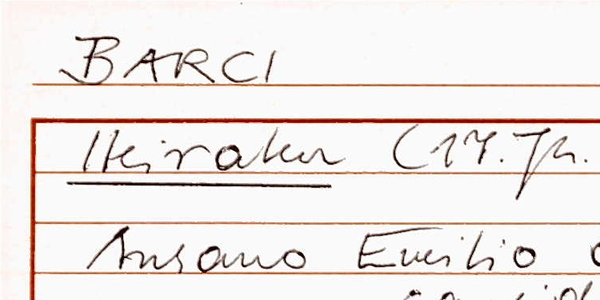 BARCI
Heiraten (17. Jh.
Ansano Emilio